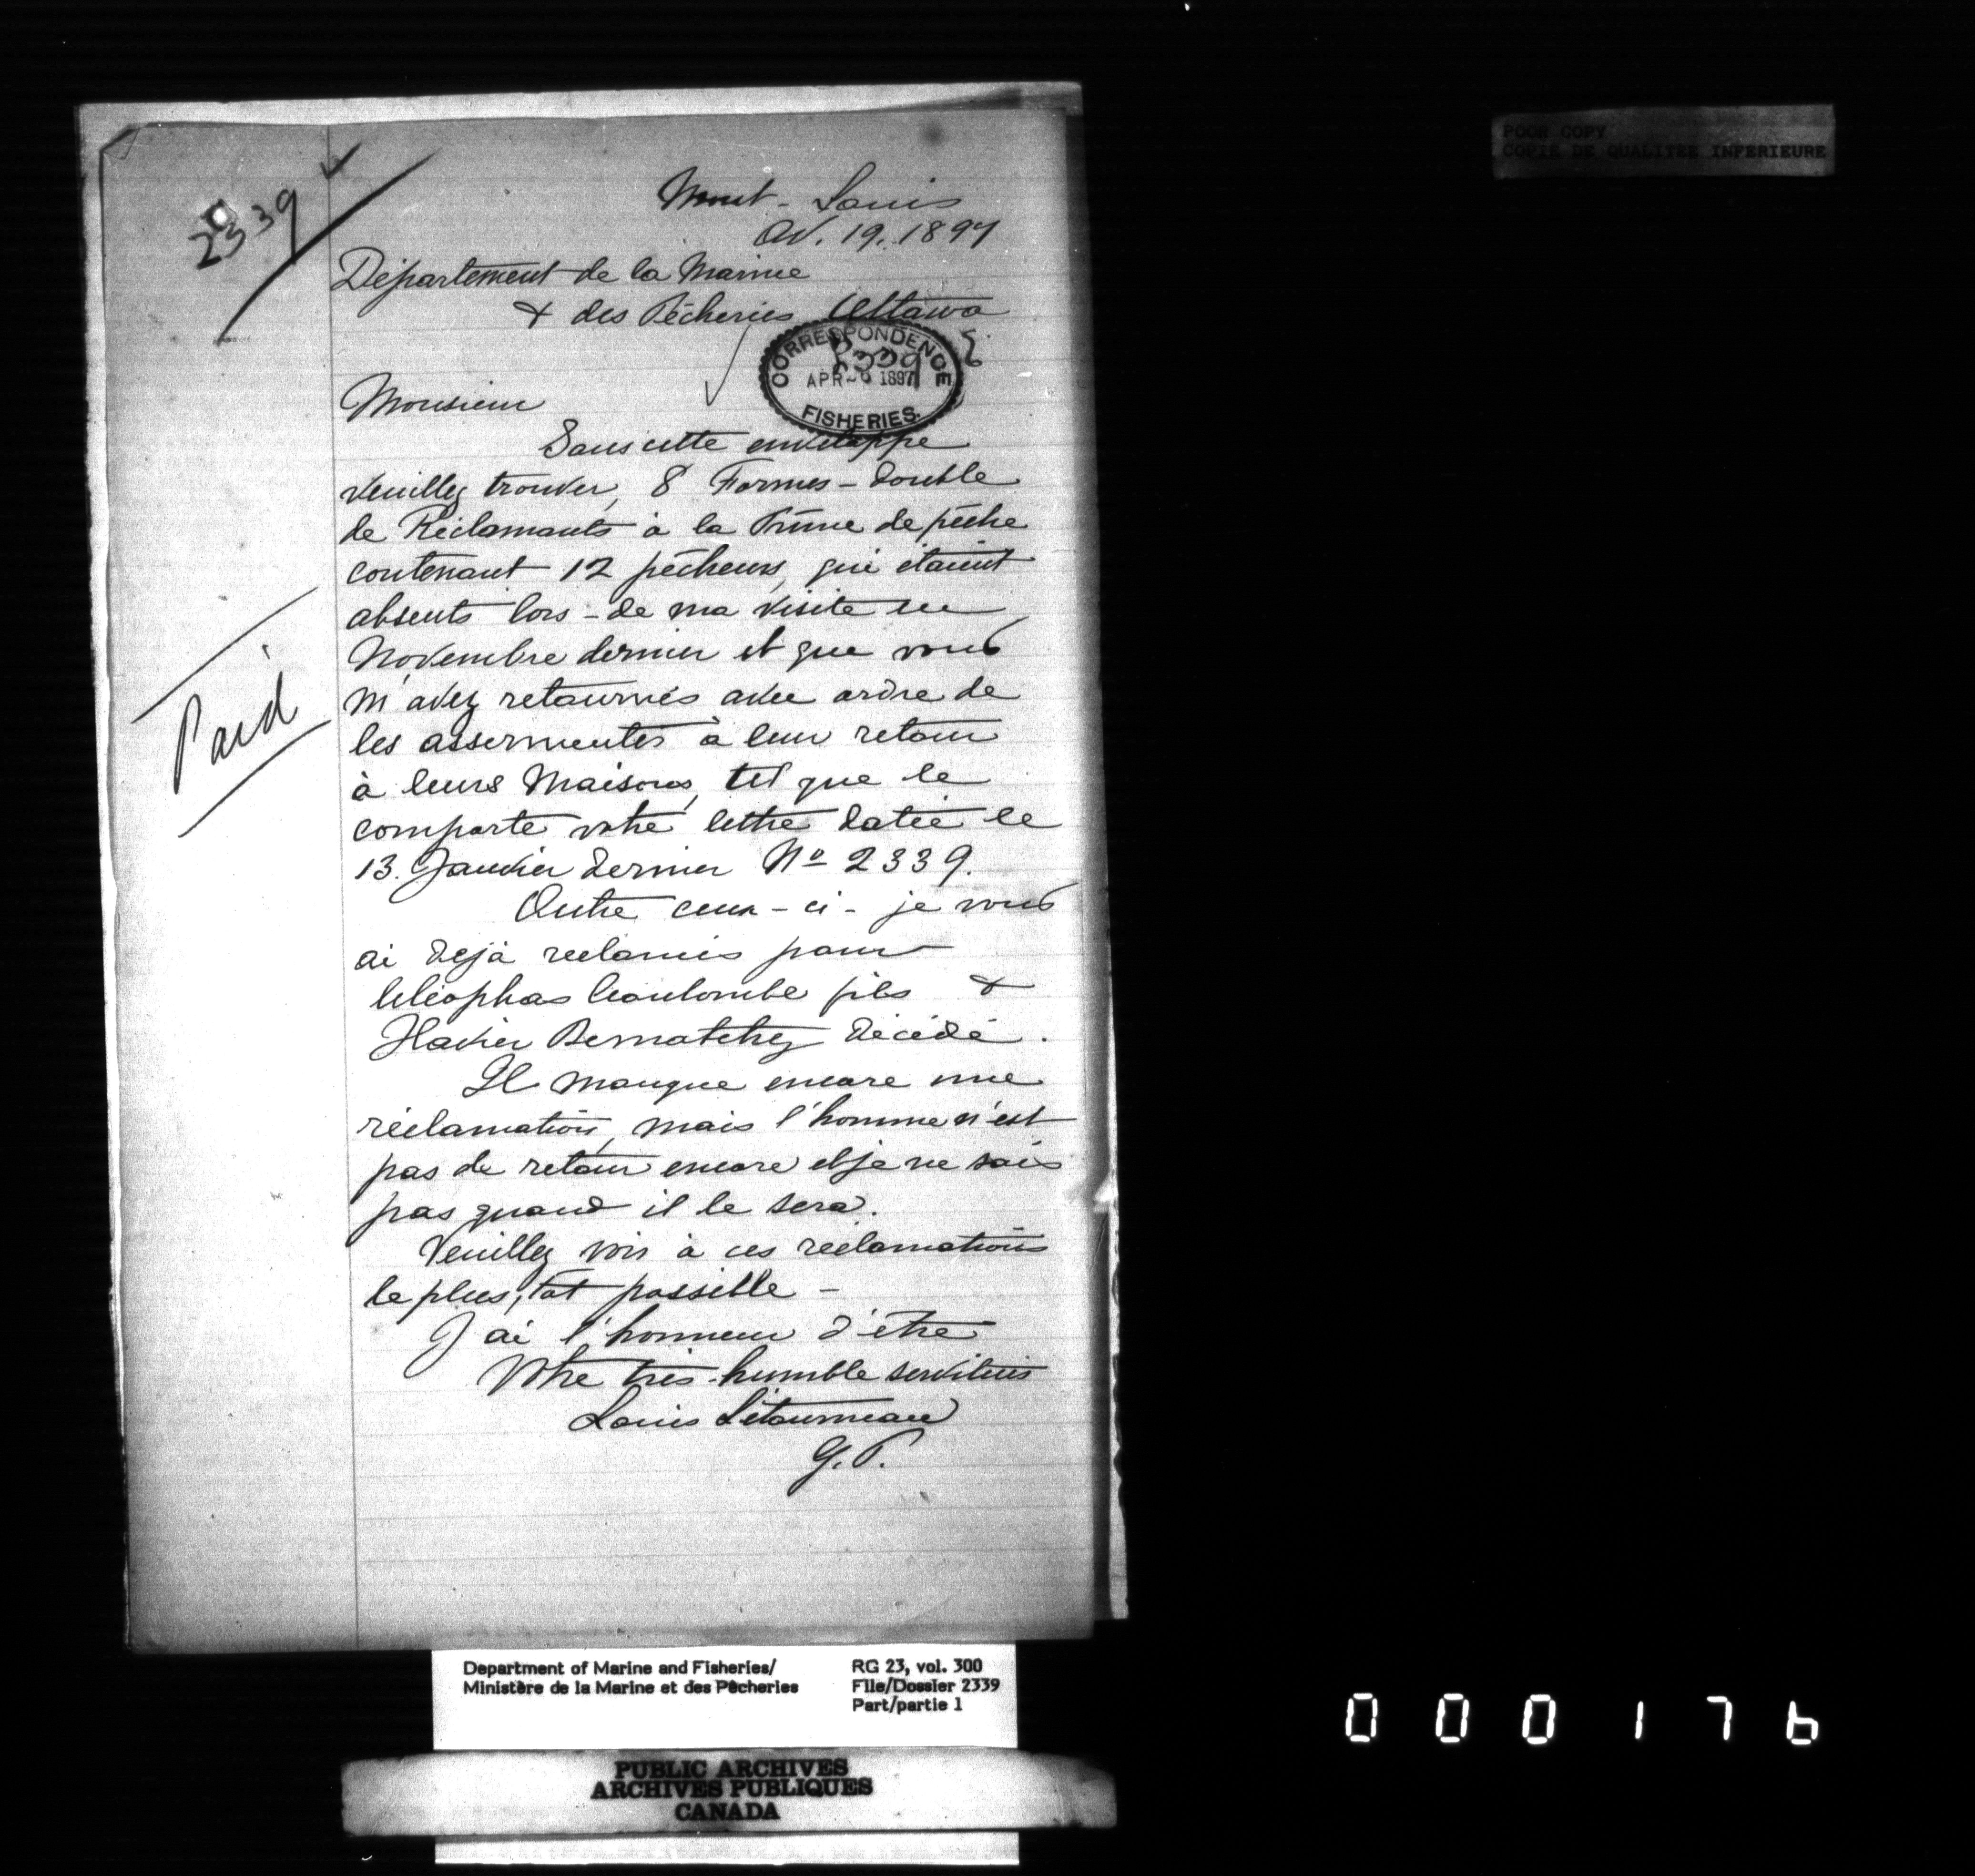 POOR COPY
COPIE DE QUALITEE INFERIEURE
2339
Mont-Louis
Av. 19. 1897
Département de la Marine
& des Pêcheries Ottawa
CORRESPONDENCE
2339
APR 1897
FISHERIES.
Monsieur
Sous cette enveloppe
veuillez trouver, 8 Formes-double
de Réclamants à la Prime de pêche
contenant 12 pêcheurs, qui étaient
absents lors-de ma visite en
Novembre dernier et que vous
m'avez retournés avec ordre de
les assermentés à leur retour
à leurs Maisons, tel que le
comporte votre lettre datée le
13. Janvier dernier No 2339.
Paid
Outre ceux-ci- je vous
ai déjà réclamés pour
Cléophas Coulombe fils &
Xavier Bernatchez décédé.
Il manque encore une
réclamation, mais l'homme n'est
pas de retour encore et je ne sais
pas quand il le sera.
Veuillez voir à ces réclamations
le plus, tôt possible -
J'ai l'honneur d'être
Votre très-humble serviteur
Louis Létourneau
G.P.
Department of Marine and Fisheries/
Ministère de la Marine et des Pêcheries
RG 23, vol. 300
File/Dossier 2339
Part/partie 1
PUBLIC ARCHIVES
ARCHIVES PUBLIQUES
CANADA
000176